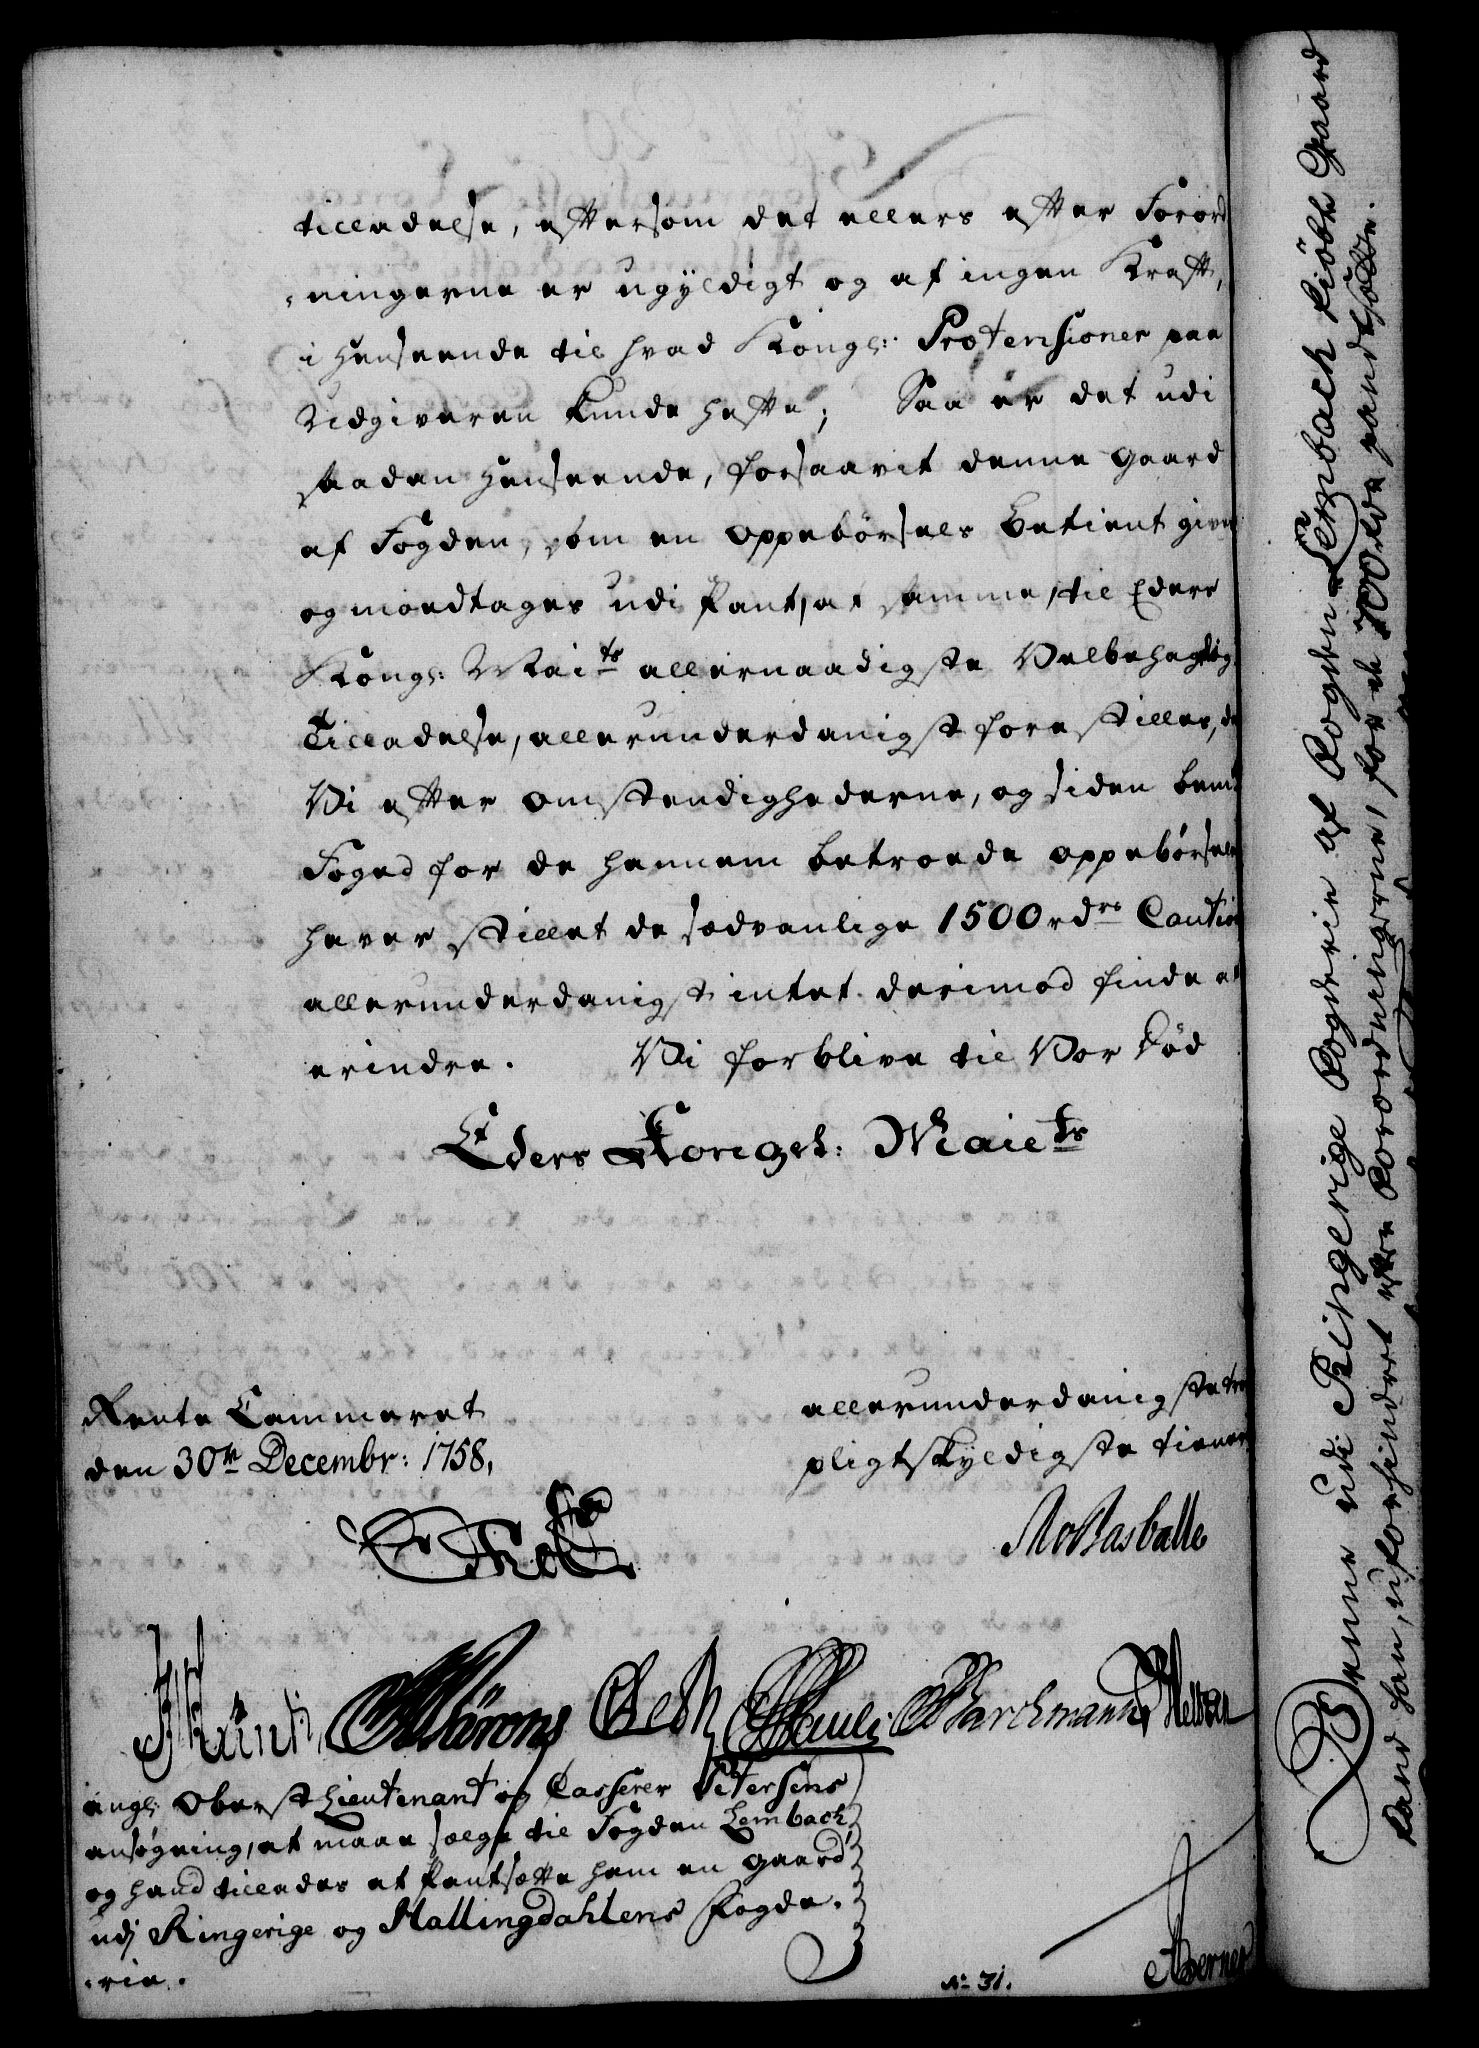 tilladelse, eftersom det ellers efter Forord
ningerne er ugyldigt og af ingen Kraft,
i henseende til hvad Kongl: Prætensioner paa
Udgiveren kunde hefte; Saa er det udi
saadan henseende, forsaavit denne Gaard
af Fogden, som en Oppebörsels betient gives
og modtages udi Pant, at samme, til Eders
Kongl: Mai<sup>ts</sup> allernaadigste Velbehag og
Tilladelse, allerunderdanigst forestilles, da
Vi efter omstendighederne, og siden bem<sup>te</sup>
Foged for de hannem betroede oppebörseler
haver stillet de sædvanlige 1500 rd<sup>rs</sup> Caution
allerunderdanigst intet derimod finde at
erindre. Vi forblive til Vor Död
Eders Kongel: Maie<sup>ts</sup>
Rente Cammeret
den 30<sup>te</sup> Decembr: 1758,
allerunderdanigste troe
pligtskyldigste tienere
angl: Oberst Lieutenant og Casserer Petersens
ansøgning, at maae sælge til Fogden Lembach,
og hand tillades at Pantsætte ham en gaard
udj Ringerige og Hallingdahlens Fogde-
-rie.
No 31.
Denne udi Ringerige Fogderie af Fogden Lembach kiöbte Gaard
kand han, uforhindret efter Forordningerne, for de 700 rdr pandsætte.